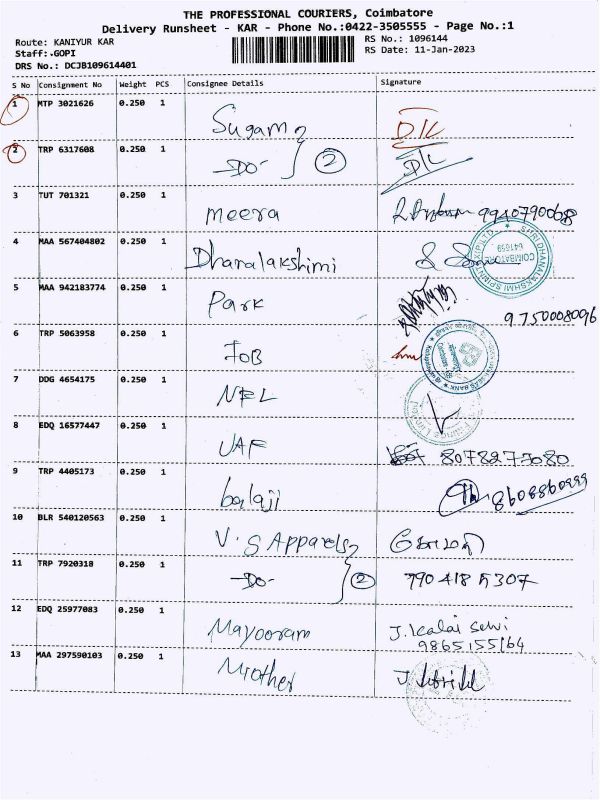 THE PROFESSIONAL COURIERS, Coimbatore
Delivery Runsheet - KAR - Phone No.:0422-3505555 - Page No.:1
Route: KANIYUR KAR
RS No.: 1096144
Staff:.GOPI
RS Date: 11-Jan-2023
DRS No.: DCJB109614401
S No Consignment No Weight PCS Consignee Details Signature
1 MTP 3021626 0.250 1 Sugam D/L
2 TRP 6317608 0.250 1 -Do- 2 D/L
3 TUT 701321 0.250 1 meera
4 MAA 567404802 0.250 1 Dhanalakshimi
SHRI DHANALAKSHMI SPINN
COIMBATORE
641659
5 MAA 942183774 0.250 1 Park
9750008096
6 TRP 5063958 0.250 1 IOB
7 DDG 4654175 0.250 1 NFL
8 EDQ 16577447 0.250 1 UAF 8078273080
9 TRP 4405173 0.250 1 balaji
10 BLR 540120563 0.250 1 V.S Apparels கோமதி
11 TRP 7920318 0.250 1 -Do- 2
12 EDQ 25977083 0.250 1 Mayooram J. Kalai Selvi
13 MAA 297590103 0.250 1 Mother